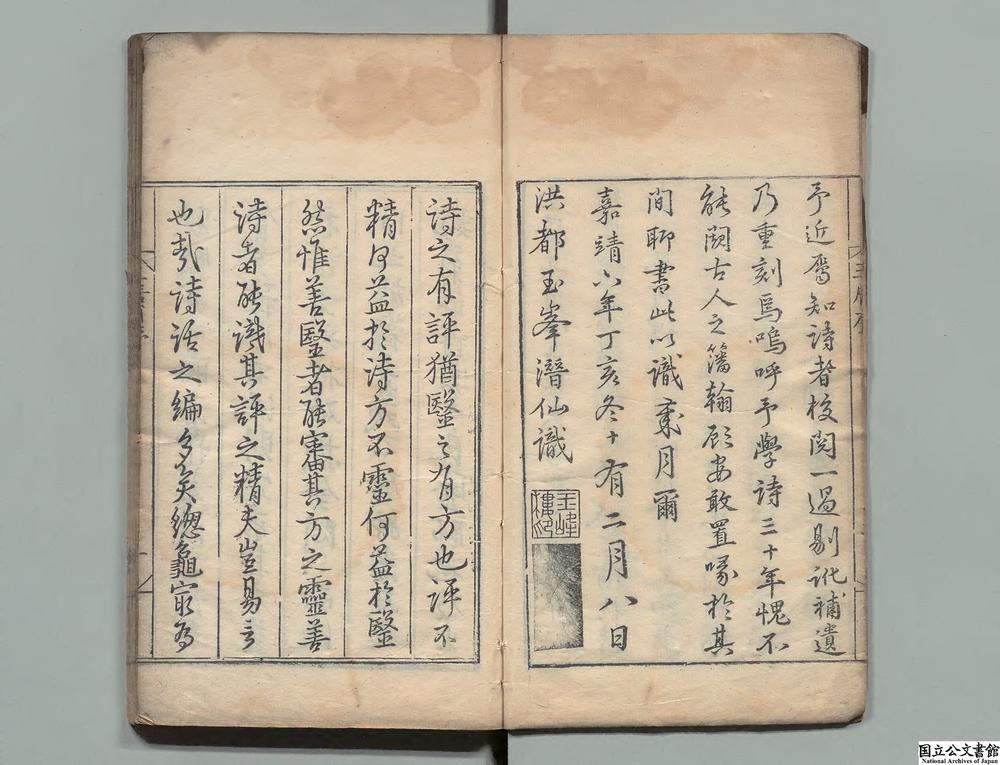 予近屬知詩者校閱一過剔訛補遺
乃重刻焉嗚呼予學詩三十年愧不
能闖古人之籓翰顧安敢置喙於其
間聊書此以識歲月爾
嘉靖六年丁亥冬十有二月八日
洪都玉峯潛仙識
玉峰
樓記
詩之有評猶醫之有方也評不
精何益於詩方不靈何益於醫
然惟善醫者能審其方之靈善
詩者能識其評之精夫豈易言
也哉詩話之編多矣總龜冣為
国立公文書館
National Archives of Japan